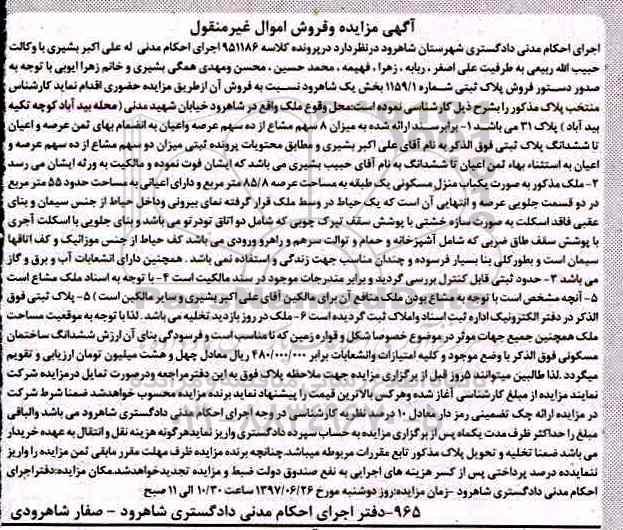 آگهی مزایده وفروش اموال غیرمنقول
اجرای احکام مدنی دادگستری شهرستان شاهرود درنظردارد درپرونده کلاسه ۹۵۱۱۸۶ اجرای احکام مدنی له علی اکبر بشیری با وکالت
حبیب الله ربیعی به طرفیت علی اصغر ، ربابه ، زهرا ، فهیمه ، محمد حسین ، محسن ومهدی همگی بشیری و خانم زهرا ایوبی با توجه به
صدور دستور فروش پلاک ثبتی شماره ۱۱۵۹/۱ بخش یک شاهرود نسبت به فروش آن ازطریق مزایده حضوری اقدام نماید کارشناس
منتخب پلاک مذکور را بشرح ذیل کارشناسی نموده است:محل وقوع ملک واقع در شاهرود خیابان شهید مدنی (محله بید آباد کوچه تکیه
بید آباد ) پلاک ۳۱ می باشد ۱- برابرسند ارائه شده به میزان ۸ سهم مشاع از ده سهم عرصه واعیان به انضمام بهای ثمن عرصه و اعیان
تا ششدانگ پلاک ثبتی فوق الذکر به نام آقای علی اکبر بشیری و مطابق محتویات پرونده ثبتی میزان دو سهم مشاع از ده سهم عرصه و
اعیان به استثناء بهاء ثمن اعیان تا ششدانگ به نام آقای حبیب بشیری می باشد که ایشان فوت نموده و مالکیت به ورثه ایشان می رسد
۲- ملک مذکور به صورت یکباب منزل مسکونی یک طبقه به مساحت عرصه ۸۵/۸ متر مربع و دارای اعیانی به مساحت حدود ۵۵ متر مربع
در دو قسمت جلویی عرصه و انتهایی آن است که یک حیاط در وسط ملک قرار گرفته نمای بیرونی وداخل حیاط از جنس سیمان و بنای
عقبی فاقد اسکلت به صورت سازه خشتی با پوشش سقف تیرک چوبی که شامل دو اتاق تودرتو می باشد و بنای جلویی با اسکلت آجری
با پوشش سقف طاق ضربی که شامل آشپزخانه و حمام و توالت سرهم و راهرو ورودی می باشد کف حیاط از جنس موزائیک و کف اتاقها
سیمان است و بطورکلی بنا بسیار فرسوده و چندان مناسب جهت زندگی و استفاده نمی باشد . همچنین دارای انشعابات آب و برق و گاز
می باشد ۳- حدود ثبتی قابل کنترل بررسی گردید و برابر مندرجات موجود در سند مالکیت است ۴- با توجه به اسناد ملک مشاع است
۵- آنچه مشخص است با توجه به مشاع بودن ملک منافع آن برای مالکین آقای علی اکبر بشیری و سایر مالکین است ) ۵- پلاک ثبتی فوق
الذکر در دفتر الکترونیک اداره ثبت اسناد واملاک ثبت گردیده است ۶- ملک در روز بازدید تخلیه می باشد . لذا با توجه به موقعیت مساحت
ملک همچنین جمیع جهات موثر در موضوع خصوصا شکل و قواره زمین که نا مناسب است و فرسودگی بنای آن ارزش ششدانگ ساختمان
مسکونی فوق الذکر با وضع موجود و کلیه امتیازات وانشعابات برابر ۴۸۰/۰۰۰/۰۰۰ ریال معادل چهل و هشت میلیون تومان ارزیابی و تقویم
میگردد .لذا طالبین میتوانند ۵روز قبل از برگزاری مزایده جهت ملاحظه پلاک فوق به این دفترمراجعه ودرصورت تمایل درمزایده شرکت
نمایند مزایده از مبلغ کارشناسی آغاز شده وهرکس بالاترین قیمت را پیشنهاد نماید برنده مزایده محسوب خواهدشد ضمنا شرط شرکت
در مزایده ارائه چک تضمینی رمز دار معادل ۱۰ درصد نظریه کارشناسی در وجه اجرای احکام مدنی دادگستری شاهرود می باشد والباقی
مبلغ را حداکثر ظرف مدت یکماه پس از برگزاری مزایده به حساب سپرده دادگستری واریز نمایدهرگونه هزینه نقل و انتقال به عهده خریدار
می باشد ضمنا تخلیه و تحویل پلاک مذکور تابع مقررات مربوطه میباشد.چنانچه برنده مزایده ظرف مهلت مقرر مابقی ثمن مزایده را واریز
ننمایدده درصد پرداختی پس از کسر هزینه های اجرایی به نفع صندوق دولت ضبط و مزایده تجدیدخواهدشد.مکان مزایده:دفتراجرای
احکام مدنی دادگستری شاهرود -زمان مزایده:روز دوشنبه مورخ ۱۳۹۷/۰۶/۲۶ ساعت ۱۰/۳۰ الی ۱۱ صبح
۹۶۵-دفتر اجرای احکام مدنی دادگستری شاهرود - صفار شاهرودی